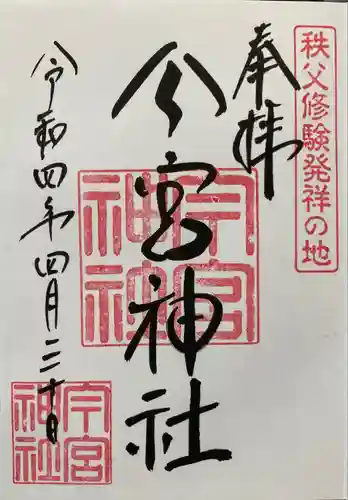 秩父修験発祥の地
奉拝
今宮神社
今宮神社
令和四年四月三十日
今宮神社